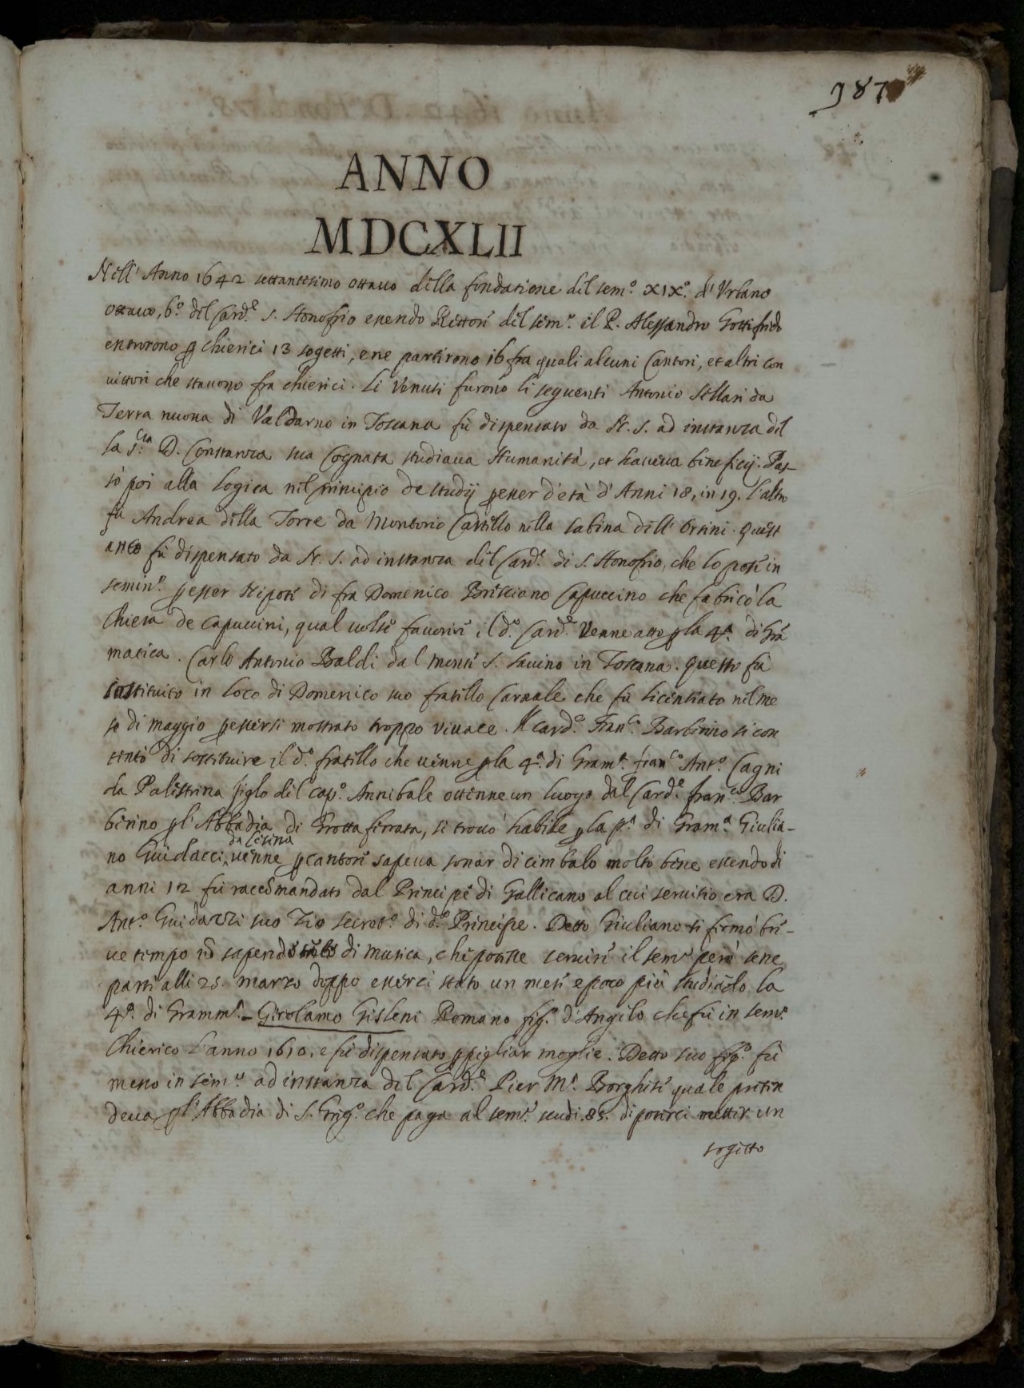 187
ANNO
MDCXLII
Nell'Anno 1642 settantesimo ottavo della fondatione del sem.º XIXº. d'Urbano
ottavo, 6.º del Card.e S. Honofrio essendo Rettore del sem.º il P. Alessandro Gottifredo
entrorono p chierici 13 sogetti, e ne partirono 16 fra quali alcuni Cantori, et altri con
vittori che stavono fra chierici. Li Venuti furono li seguenti Antonio Stellari da
Terra nuova di Valdarno in Toscana fù dispensato da N. S. ad instanza del
la S.ra D. Constanza sua Cognata studiava Humanità, et haveva beneficij. Pas-
sò poi alla logica nel principio de studij p esser d'età d'Anni 18, in 19. l'altro
fù Andrea della Torre da Montorio Castello nella sabina dell'Orsini. Quest
anco fù dispensato da N. S. ad instanza del Card.e di S. Honofrio, che lo pose in
semin.º p esser Nipote di fra Domenico Brisciano Capuccino che fabricò la
Chiesa de Capuccini, qual volse favorire il d.º Card.e Venne atto p la 4.a di Gra
matica. Carlo Antonio Baldi dal monte S. Savino in Toscana. Questo fù
sostituito in loco di Domenico suo fratello Carnale che fù licentiato nel me
se di maggio p essersi mostrato troppo vivace. Il Card.e Fran.co Barberino si con
tentò di sostituire il d.º fratello che venne p la 4.a di Gram.a fran.co Ant.º Cagni
da Palestrina figlo del cap.º Annibale ottenne un luogo dal Card.e fran.co Bar
berino p l'Abbadia di Grotta ferrata, si trovò habile p la p.a di Gram.a Giulia-
no Guidacci, da Cesena venne p cantore sapeva sonar di cimbalo molto bene essendo di
anni 12 fù raccomandato dal Principe di Gallicano al cui servitio era D.
Ant.º Guidazzi suo Zio secret.º di d.º Principe. Detto Giuliano si fermò bre-
ve tempo nō sapendo di musica, che potesse servire il sem.º però sene
partì alli 25 marzo doppo esserci stato un mese e poco più studiādo la
4.a di Gramm.a - Girolamo Gisleni Romano fig.º d'Angelo che fù in sem.º
Chierico l'anno 1610. e fù dispensato p pigliar moglie. Detto suo fig.º fù
messo in sem.º ad instanza del Card.e Pier M.a Borghese quale preten
deva p l'Abbadia di S. Greg.º che paga al sem.º scudi 85. di poterci metter un
sogetto